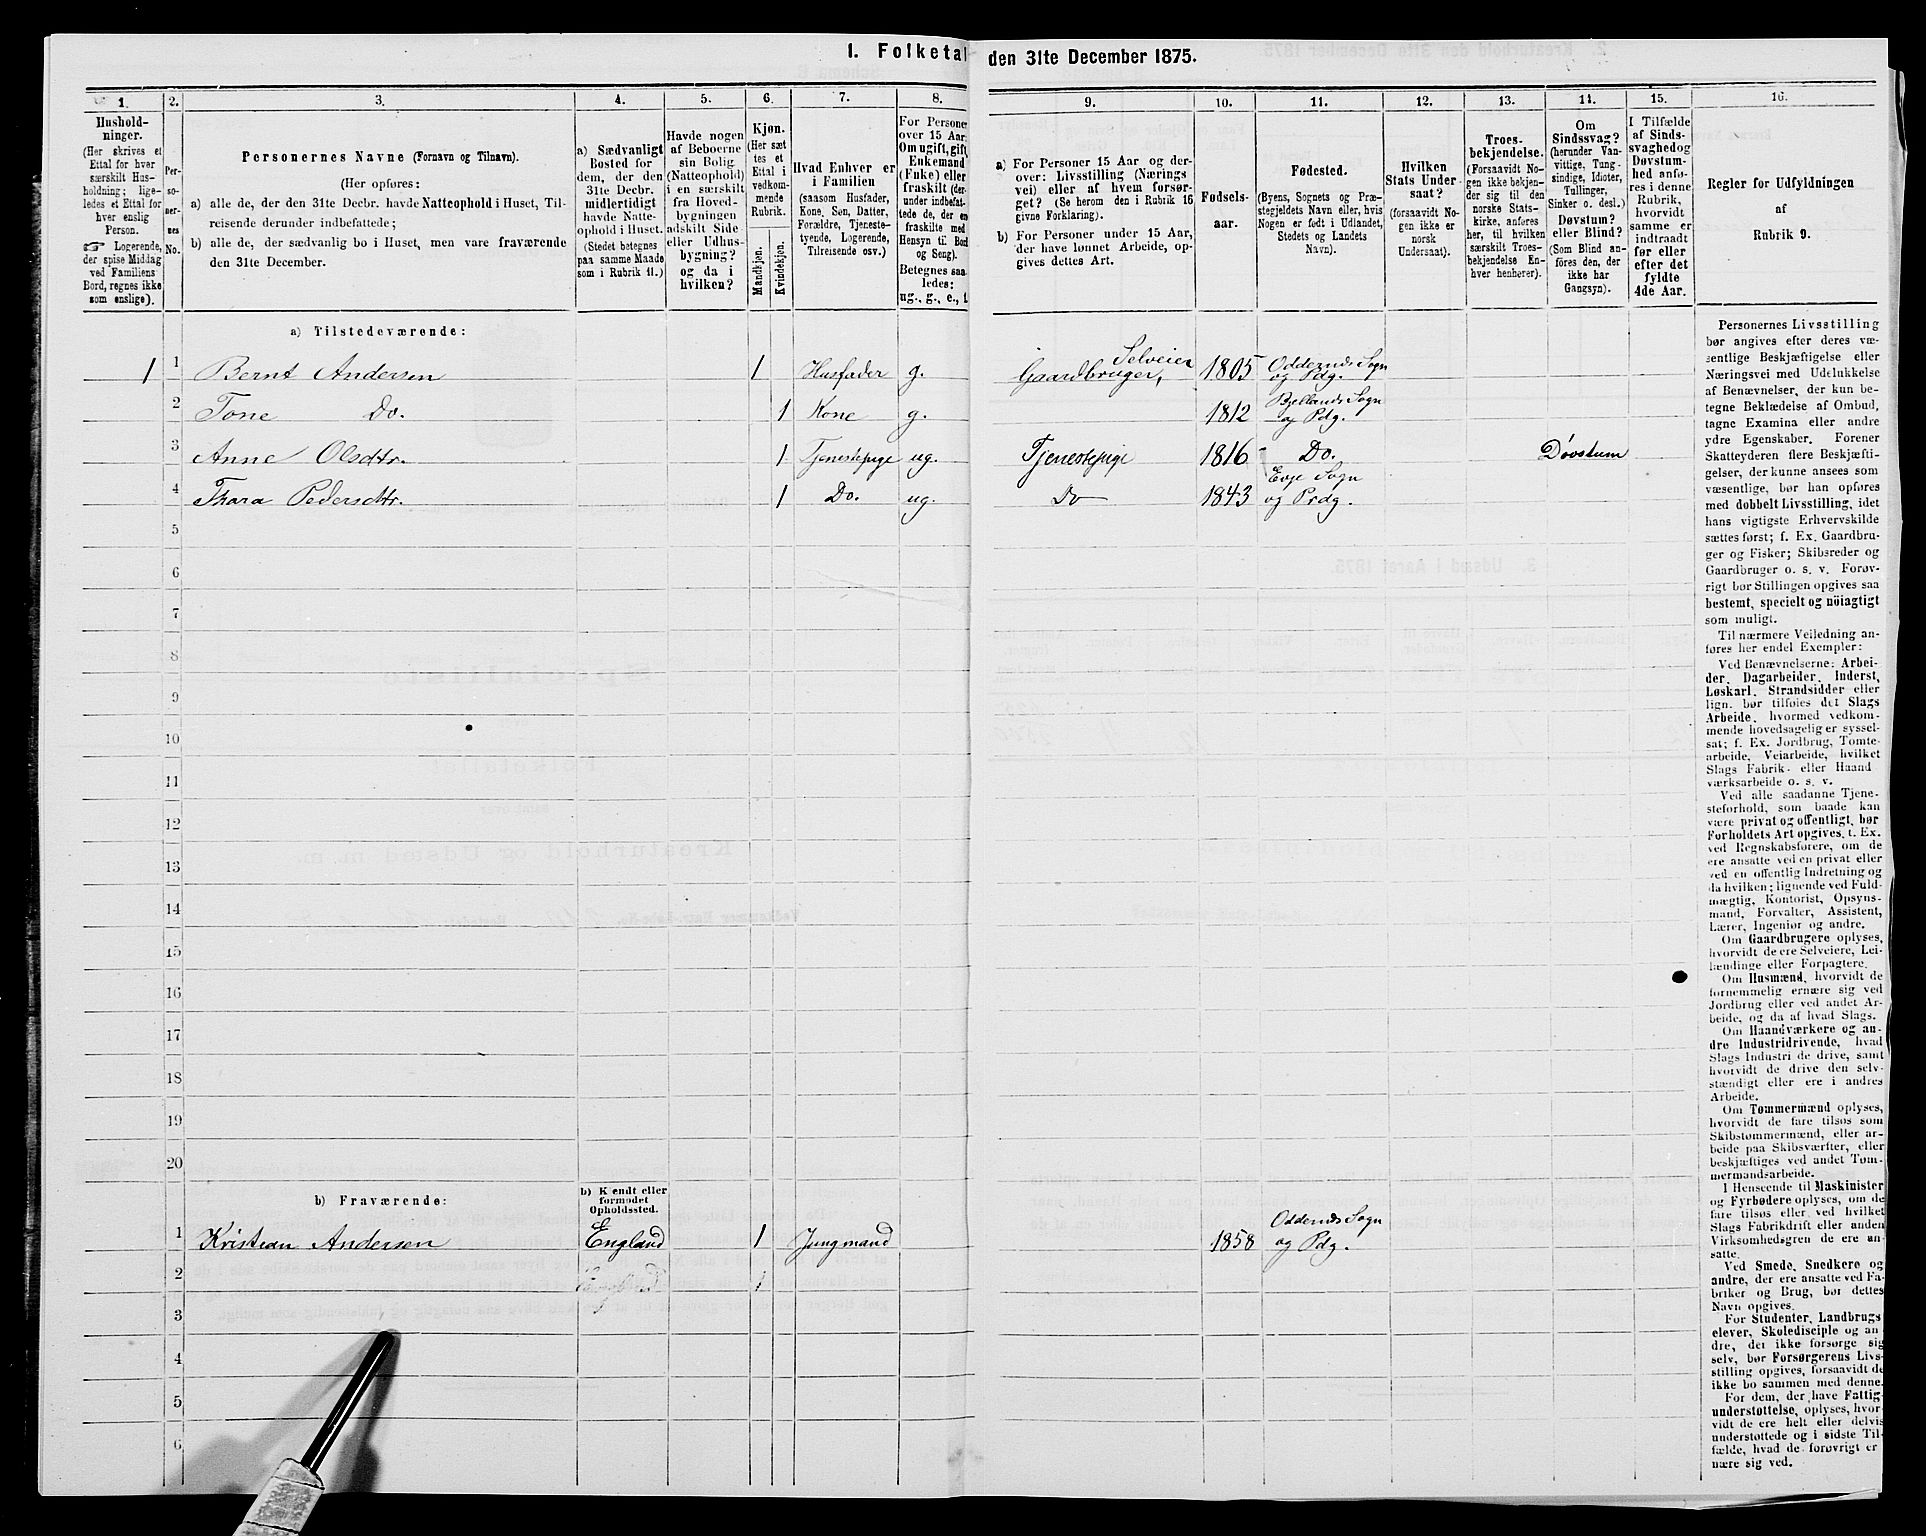 1. Folketal den 31te December 1875.
1. 2. 3. 4. 5. 6. 7. 8. 9. 10. 11. 12. 13. 14. 15. 16.
Hushold-
ninger.
(Her skrives et
Ettal for hver
særskilt Hus-
holdning; lige-
ledes et Ettal for
hver enslig
Person.
☞ Logerende,
der spise Middag
ved Familiens
Bord, regnes ikke
som enslige).
Per-
so-
ner-
nes
No.
Personernes Navne (Fornavn og Tilnavn).
(Her opføres:
a) alle de, der den 31te Decbr. havde Natteophold i Huset, Til-
reisende derunder indbefattede;
b) alle de, der sædvanlig bo i Huset, men vare fraværende
den 31te December.
a) Sædvanligt
Bosted for
dem, der den
31te Decbr.
midlertidigt
havde Natte-
ophold i Huset.
(Stedet betegnes
paa samme Maade
som i Rubrik 11.)
Havde nogen
af Beboerne
sin Bolig
(Natteophold)
i en særskilt
fra Hoved-
bygningen
adskilt Side
eller Udhus-
bygning?
og da i
hvilken?
Kjøn.
(Her sæt
tes et
Ettal i
vedkom-
mende
Rubrik.
Mandkjøn.
Kvindekjøn.
Hvad Enhver er
i Familien
(saasom Husfader,
Kone, Søn, Datter,
Forældre, Tjeneste-
tyende, Logerende,
Tilreisende osv.)
For Personer
over 15 Aar:
Om ugift, gift,
Enkemand
(Enke) eller
fraskilt (der-
under indbefat-
tede de, der ere
fraskilte med
Hensyn til Bord
og Seng).
Betegnes saa-
ledes:
ug., g., e., f.
a) For Personer 15 Aar og der-
over: Livsstilling (Nærings
vei) eller af hvem forsør-
get? (Se herom den i Rubrik 16
givne Forklaring).
b) For Personer under 15 Aar,
der have lønnet Arbeide, op-
gives dettes Art.
Fødsels-
aar.
Fødested.
(Byens, Sognets og Præ-
stegjeldets Navn eller, hvis
Nogen er født i Udlandet,
Stedets og Landets
Navn).
Hvilken
Stats Under-
saat?
(forsaavidt No-
gen ikke er
norsk
Undersaat).
Troes-
bekjendelse.
(Forsaavidt No-
gen ikke bekjen-
der sig til den
norske Stats-
kirke, anføres
her, til hvilken
særskilt Troes-
bekjendelse En-
hver henhører).
Om
Sindssvag?
(herunder Van-
vittige, Tung-
sindige, Idioter,
Tullinger,
Sinker o. desl.)
Døvstum?
eller Blind?
(Som Blind an-
føres den, der
ikke har
Gangsyn).
I Tilfælde
af Sinds-
svaghed og
Døvstum-
hed anfø-
res i denne
Rubrik,
hvorvidt
samme er
indtraadt
før eller
efter det
fyldte
4de Aar.
Regler for Udfyldningen
af
Rubrik 9.
a) Tilstedeværende:
1 1 Bernt Andersen 1 Husfader g. Gaardbruger, Selveier 1805 Oddernds Sogn og Pdg.
2 Tone Do. 1 Kone g. 1812 Bjellands Sogn og Pdg.
3 Anne Olsdtr. 1 Tjenestepige ug. Tjenestepige 1816 Do. Døvstum
4 Thara Pedersdtr. 1 Do. ug. Do 1843 Evje Sogn og Prdg.
5
6
7
8
9
10
11
12
13
14
15
16
17
18
19
20
b) Fraværende:
b) Kjendt eller
formodet
Opholdssted.
1 Kristian Andersen England 1 Jungmand 1858 Oddernds Sogn og Pdg.
2 England 1
3
4
5
6
Personernes Livsstilling
bør angives efter deres væ-
sentlige Beskjæftigelse eller
Næringsvei med Udelukkelse
af Benævnelser, der kun be-
tegne Beklædelse af Ombud,
tagne Examina eller andre
ydre Egenskaber. Forener
Skatteyderen flere Beskjæfti-
gelser, der kunne ansees som
væsentlige, bør han opføres
med dobbelt Livsstilling, idet
hans vigtigste Erhvervskilde
sættes først; f. Ex. Gaardbru-
ger og Fisker; Skibsreder og
Gaardbruger o. s. v. Forøv-
rigt bør Stillingen opgives saa
bestemt, specielt og nöiagtigt
som muligt.
Til nærmere Veiledning an-
føres her endel Exempler:
Ved Benævnelserne: Arbei-
der, Dagarbeider, Inderst,
Løskarl, Strandsidder eller
lign. bør tilføies det Slags
Arbeide, hvormed vedkom-
mende hovedsagelig er syssel-
sat; f. Ex. Jordbrug, Tomte-
arbeide, Veiarbeide, hvilket
Slags Fabrik- eller Haand
værksarbeide o. s. v.
Ved alle saadanne Tjene-
steforhold, som baade kan
være privat og offentligt, bør
Forholdets Art opgives, t. Ex.
ved Regnskabsførere, om de
ere ansatte ved en privat eller
ved en offentlig Indretning og
da hvilken; lignende ved Fuld-
mægtig, Kontorist, Opsyns-
mand, Forvalter, Assistent,
Lærer, Ingeniør og andre.
Om Gaardbrugere oplyses,
hvorvidt de ere Selveiere, Lei-
lændinge eller Forpagtere.
Om Husmænd, hvorvidt de
fornemmelig ernære sig ved
Jordbrug eller ved andet Ar-
beide, og da af hvad Slags.
Om Haandværkere og an-
dre Industridrivende, hvad
Slags Industri de drive, samt
hvorvidt de drive den selv-
stændigt eller ere i andres
Arbeide.
Om Tømmermænd oplyses,
hvorvidt de fare tilsøs som
Skibstømmermænd, eller ar-
beide paa Skibsværfter, eller
beskjæftiges ved andet Tøm-
mermandsarbeide.
I Henseende til Maskinister
og Fyrbødere oplyses, om de
fare tilsøs eller ved hvilket
Slags Fabrikdrift eller anden
Virksomhedsgren de ere an-
satte.
Ved Smede, Snedkere og
andre, der ere ansatte ved Fa-
briker og Brug, bør dettes
Navn opgives.
For Studenter, Landbrugs
elever, Skoledisciple og an
dre, der ikke forsørge sig
selv, bør Forsørgerens Livs-
stilling opgives, forsaavidt de
ikke bo sammen med denne.
For dem, der have Fattig-
understøttelse, oplyses, hvor-
vidt de ere helt eller delvis
understøttede og i sidste Til-
fælde, hvad de forøvrigt er
nære sig ved.